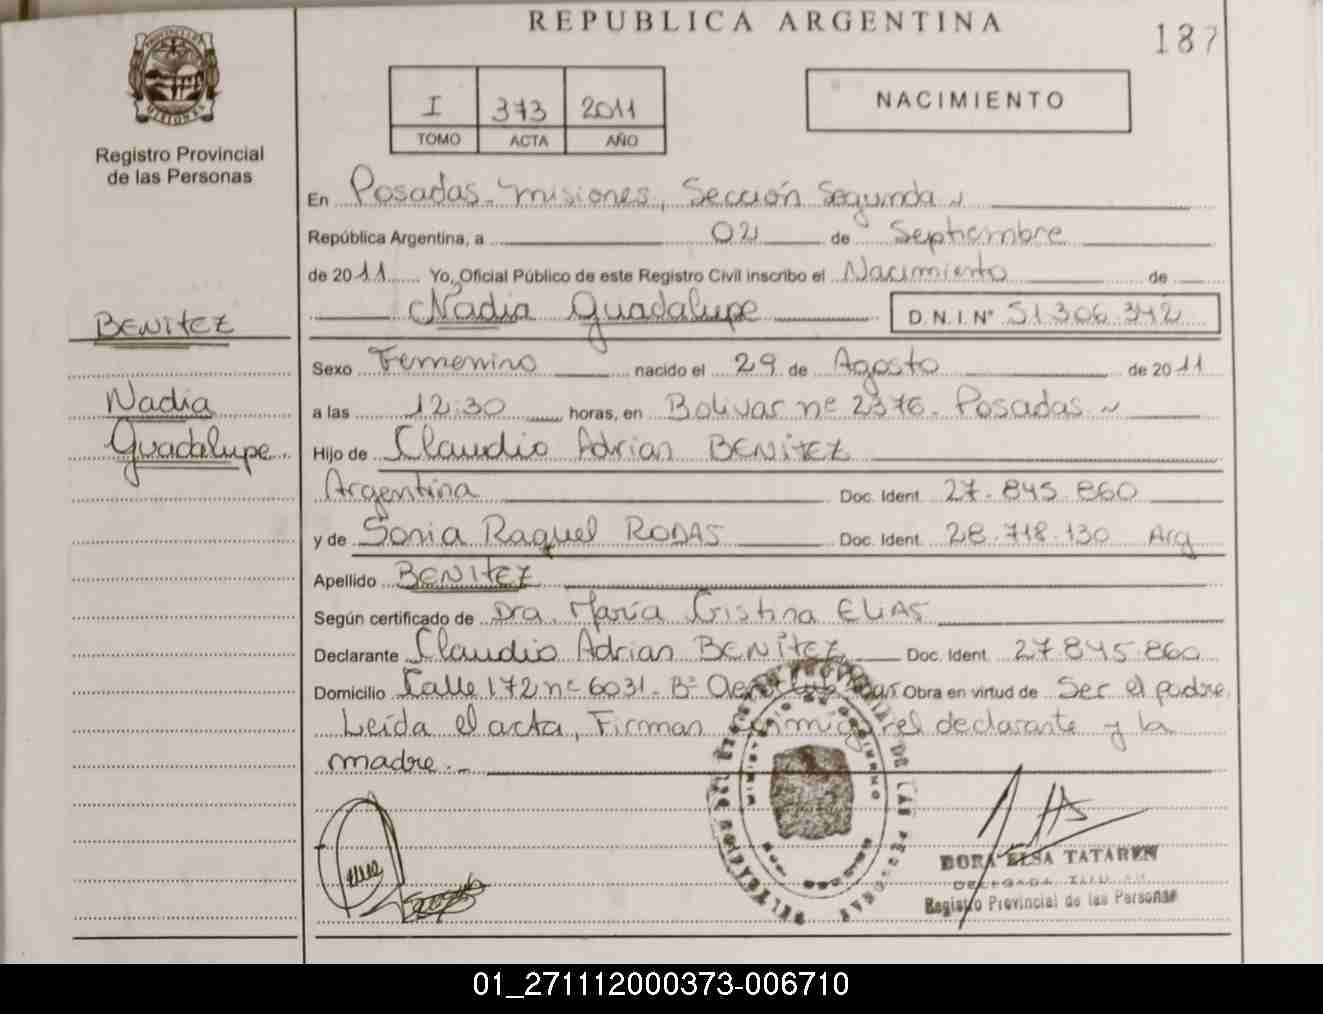 REPUBLICA ARGENTINA
187
PROVINCIA DE MISIONES
Registro Provincial
de las Personas
I 373 2011
TOMO ACTA AÑO
NACIMIENTO
En Posadas - Misiones, Sección Segunda
República Argentina, a 02 de Septiembre
de 2011 Yo, Oficial Público de este Registro Civil inscribo el Nacimiento de
Nadia Guadalupe D.N.I. Nº 51306342
BENITEZ
Nadia
Guadalupe
Sexo Femenino nacido el 29 de Agosto de 2011
a las 12:30 horas, en Bolivar nº 2376 - Posadas
Hijo de Claudio Adrian BENITEZ
Argentina Doc. Ident. 27.845.860
y de Sonia Raquel RODAS Doc. Ident. 28.718.130 Arg
Apellido BENITEZ
Según certificado de Dra. María Cristina ELIAS
Declarante Claudio Adrian BENITEZ Doc. Ident. 27845860
Domicilio Calle 172 nº 6031 - Bº Obra en virtud de Ser el padre
Leída el acta, Firman conmigo el declarante y la
madre.-
MINISTERIO DE GOBIERNO
DE LAS PERSONAS
DORA ELSA TATAREN
DELEGADA
Registro Provincial de las Personas
01_271112000373-006710